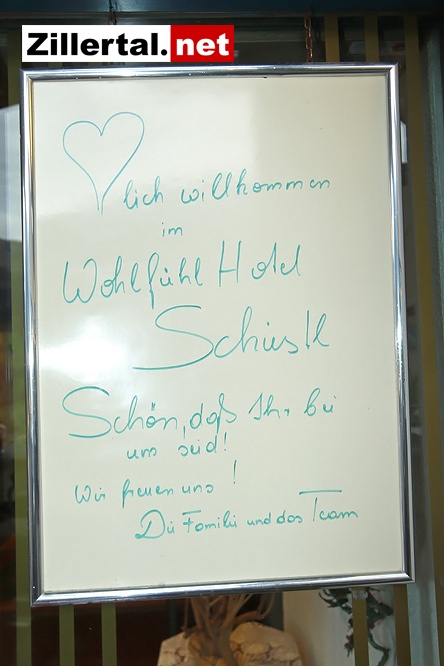 Zillertal.net
lich willkommen
im
Wohlfühl Hotel
Schiestl
Schön, daß Ihr bei
uns seid!
Wir freuen uns!
Die Familie und das Team